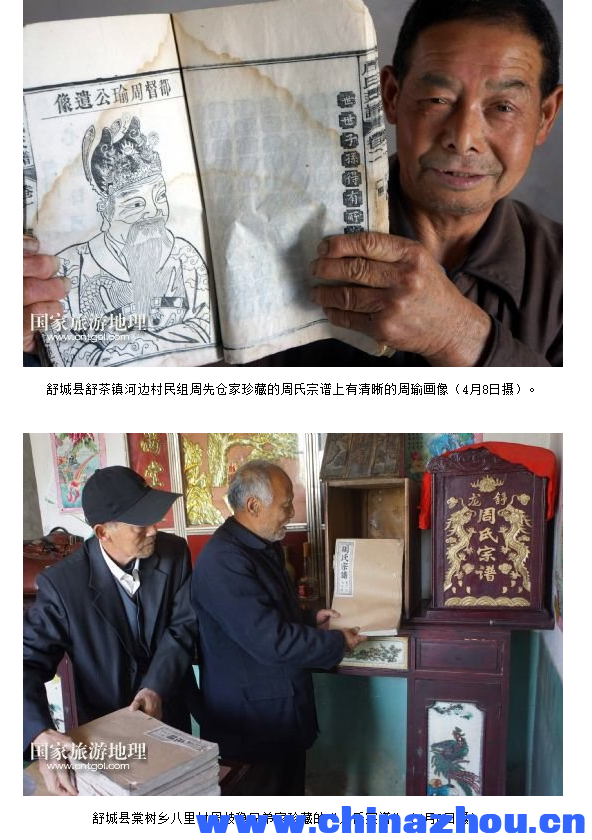 都督周瑜公遺像
世世子孫得有所
国家旅游地理
www.cntgol.com
舒城县舒茶镇河边村民组周先仓家珍藏的周氏宗谱上有清晰的周瑜画像（4月8日摄）。
周氏宗譜
龙舒
周氏宗谱
国家旅游地理
www.cntgol.com
舒城县棠树乡八里
珍藏的
www.chinazhou.cn